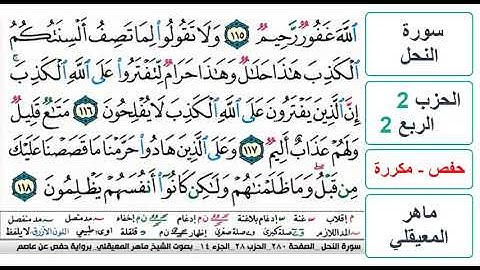 اللَّهَ غَفُورٌ رَّحِيمٌ ١١٥ وَلَا تَقُولُوا لِمَا تَصِفُ أَلْسِنَتُكُمُ
الْكَذِبَ هَٰذَا حَلَالٌ وَهَٰذَا حَرَامٌ لِّتَفْتَرُوا عَلَى اللَّهِ الْكَذِبَ ۚ
إِنَّ الَّذِينَ يَفْتَرُونَ عَلَى اللَّهِ الْكَذِبَ لَا يُفْلِحُونَ ١١٦ مَتَاعٌ قَلِيلٌ
وَلَهُمْ عَذَابٌ أَلِيمٌ ١١٧ وَعَلَى الَّذِينَ هَادُوا حَرَّمْنَا مَا قَصَصْنَا عَلَيْكَ
مِن قَبْلُ ۖ وَمَا ظَلَمْنَاهُمْ وَلَٰكِن كَانُوا أَنفُسَهُمْ يَظْلِمُونَ ١١٨
سورة
النحل
الحزب 2
الربع 2
حفص - مكررة
ماهر
المعيقلي
سورة النحل. الصفحة ٢٨٠. الحزب ٢٨. الجزء ١٤. بصوت الشيخ ماهر المعيقلي. برواية حفص عن عاصم